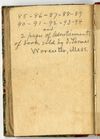 85-86-87-88-89
90-91-92-93-94
and
2 pages of Advertisements
of books sold by I. Thomas
Worcester, Mass.